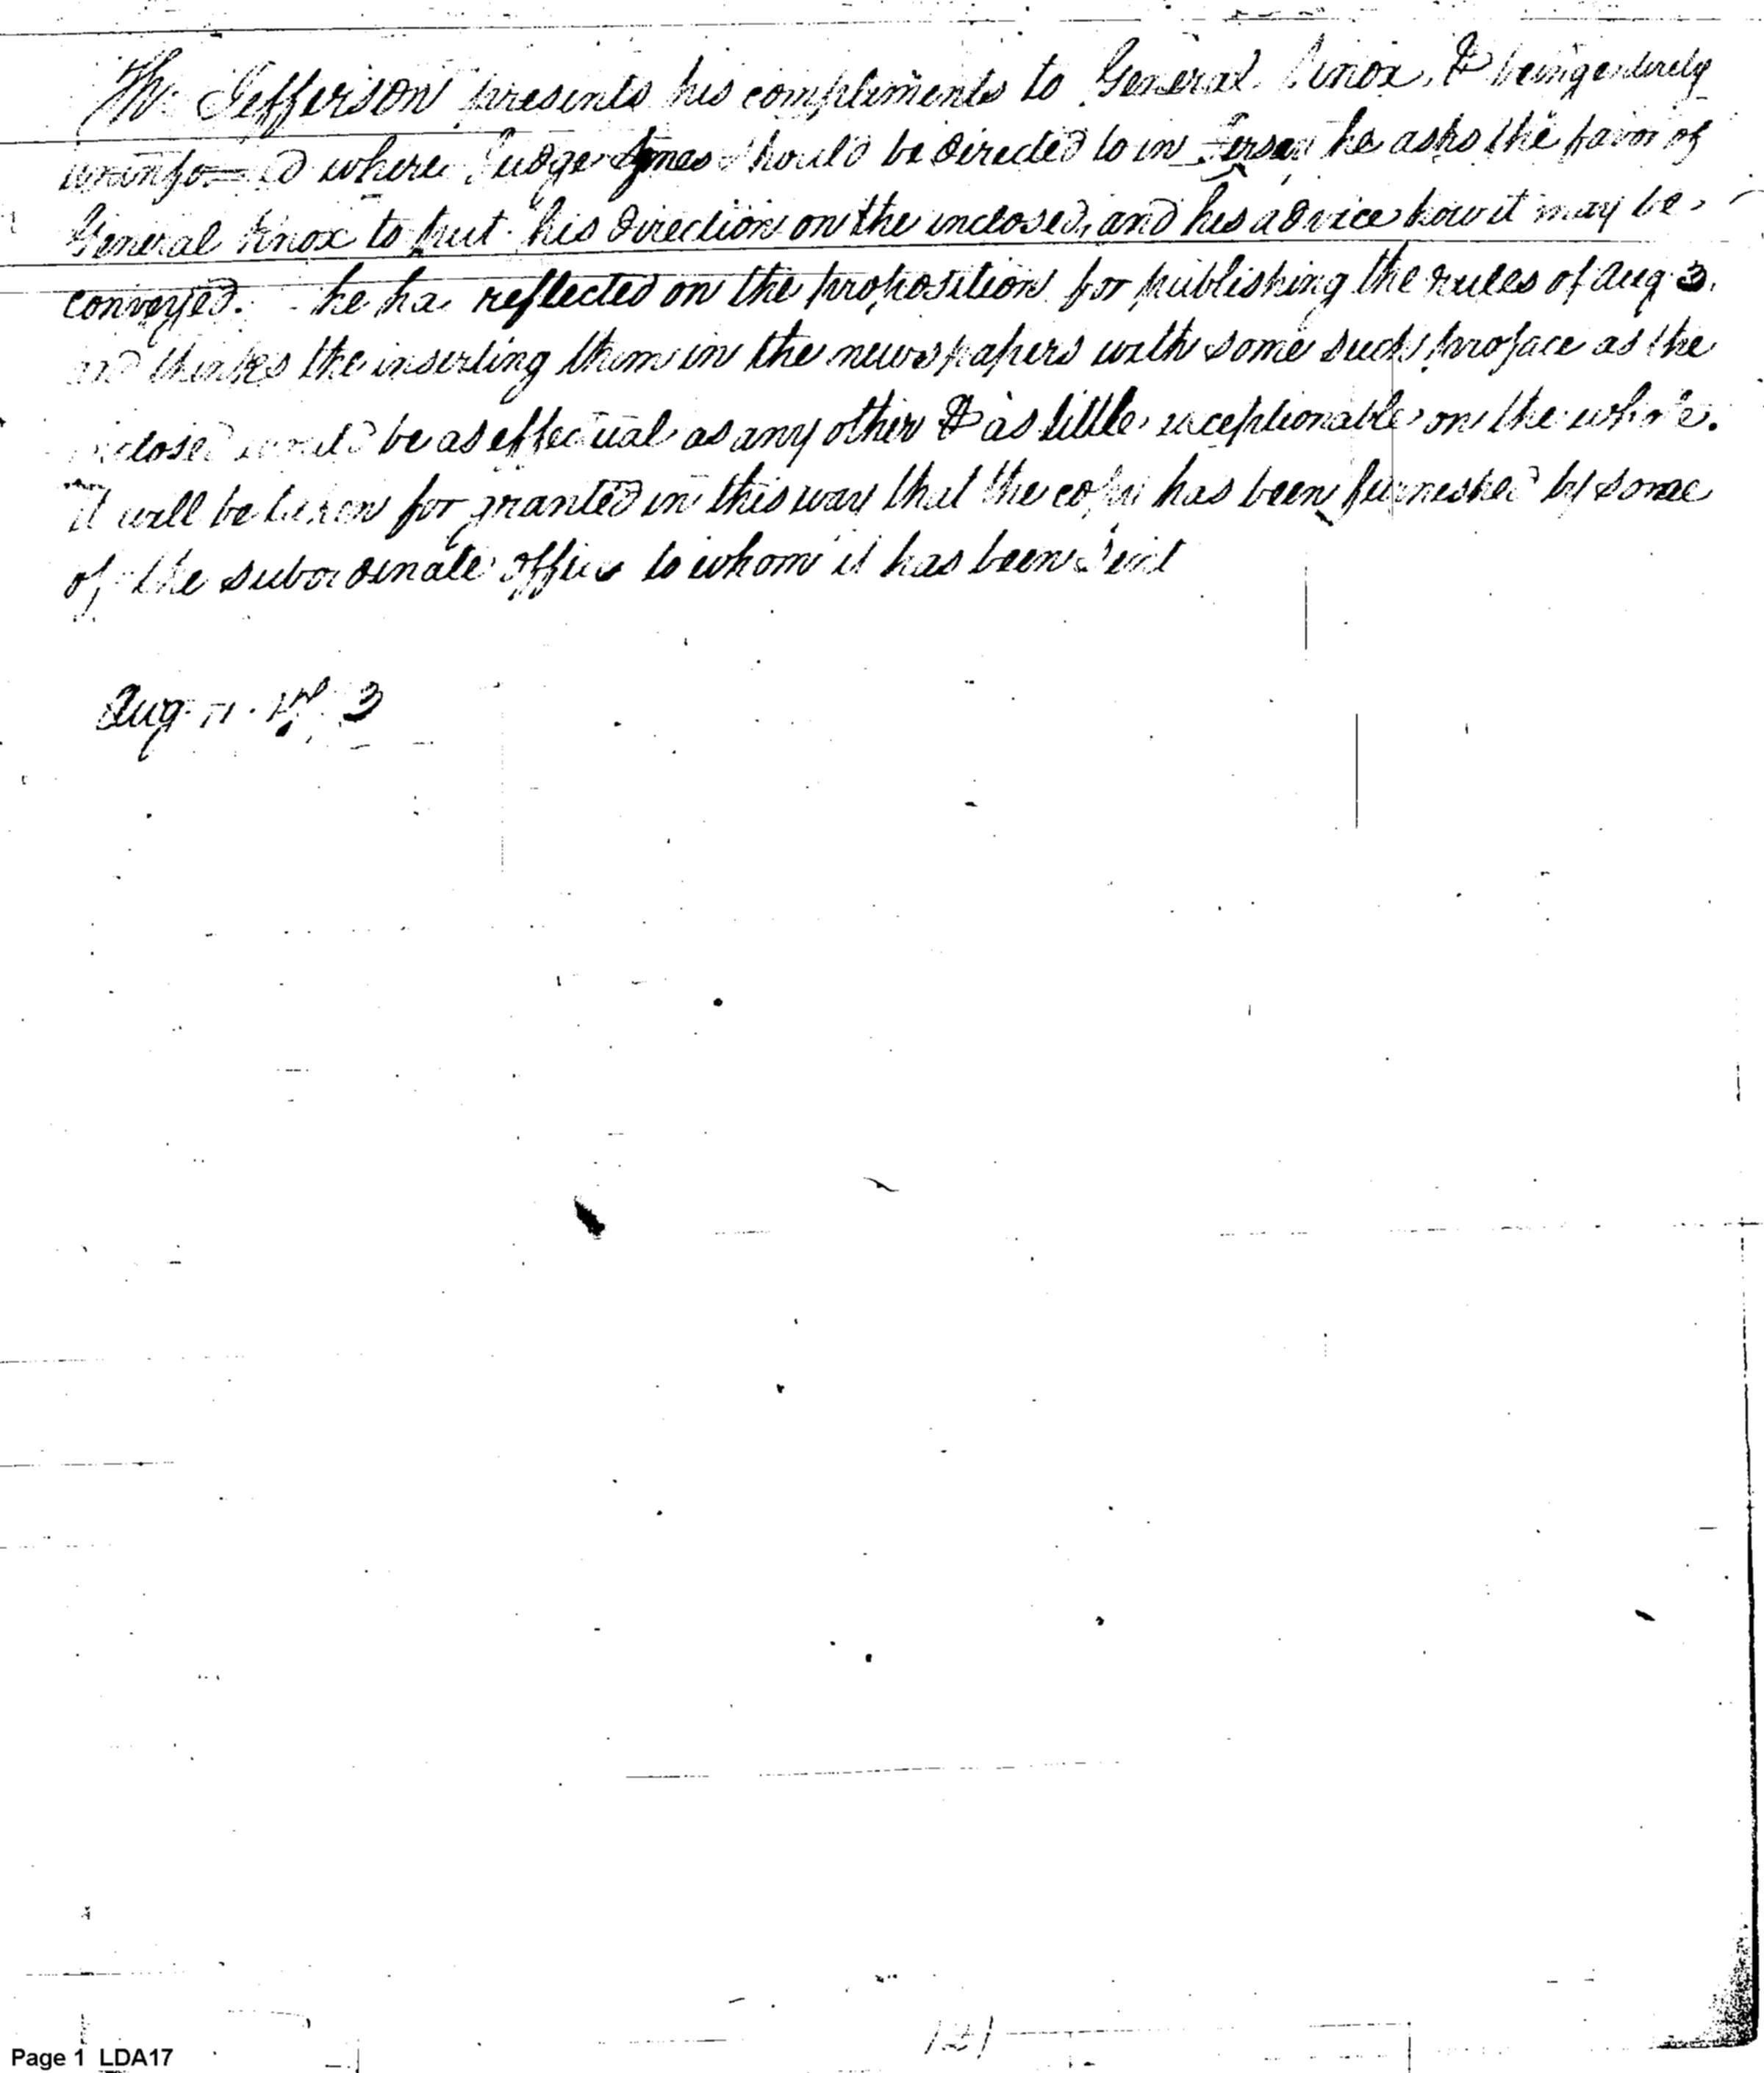 Th: Jefferson presents his compliments to General Knox, & being entirely
uninformed where Judge Symes should be directed to in Jersey he asks the favor of
General Knox to put his direction on the inclosed, and his advice how it may be
conveyed. he has reflected on the proposition for publishing the rules of Aug. 3.
and thinks the inserting them in the newspapers with some such preface as the
inclosed would be as effectual as any other & as little exceptionable on the whole.
it will be taken for granted in this way that the copy has been furnished by some
of the subordinate offices to whom it has been sent
Aug.
121
Page 1 LDA17